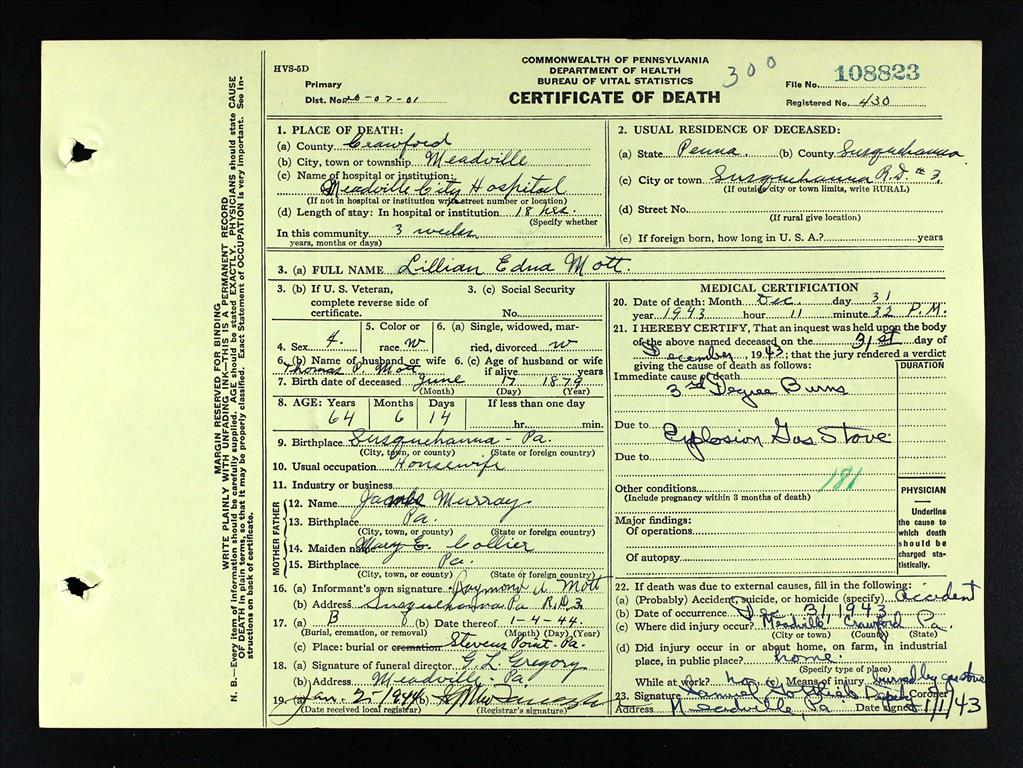 HVS-5D
COMMONWEALTH OF PENNSYLVANIA
DEPARTMENT OF HEALTH
BUREAU OF VITAL STATISTICS
CERTIFICATE OF DEATH
300
Primary
Dist. No. 20-07-01
File No. 108823
Registered No. 430
MARGIN RESERVED FOR BINDING
WRITE PLAINLY WITH UNFADING INK—THIS IS A PERMANENT RECORD
N. B.—Every item of information should be carefully supplied. AGE should be stated EXACTLY. PHYSICIANS should state CAUSE
OF DEATH in plain terms, so that it may be properly classified. Exact Statement of OCCUPATION is very important. See In-
structions on back of certificate.
1. PLACE OF DEATH:
(a) County Crawford
(b) City, town or township Meadville
(c) Name of hospital or institution:
Meadville City Hospital
(If not in hospital or institution write street number or location)
(d) Length of stay: In hospital or institution 18 hrs.
(Specify whether
In this community 3 weeks
years, months or days)
2. USUAL RESIDENCE OF DECEASED:
(a) State Penna. (b) County Susquehanna
(c) City or town Susquehanna R.D. #3
(If outside city or town limits, write RURAL)
(d) Street No.
(If rural give location)
(e) If foreign born, how long in U. S. A.? years
3. (a) FULL NAME Lillian Edna Mott.
3. (b) If U. S. Veteran,
complete reverse side of
certificate.
3. (c) Social Security
No.
4. Sex F.
5. Color or
race W
6. (a) Single, widowed, mar-
ried, divorced W
6. (b) Name of husband or wife
Thomas P. Mott
6. (c) Age of husband or wife
if alive years
7. Birth date of deceased June 17 1879
(Month) (Day) (Year)
8. AGE: Years Months Days If less than one day
64 6 14 hr. min.
9. Birthplace Susquehanna - Pa.
(City, town, or county) (State or foreign country)
10. Usual occupation Housewife
11. Industry or business
MOTHER FATHER
12. Name Murray
13. Birthplace Pa.
(City, town, or county) (State or foreign country)
14. Maiden name Mary E. Collier
15. Birthplace Pa.
(City, town, or county) (State or foreign country)
16. (a) Informant's own signature Raymond Mott
(b) Address Susquehanna Pa R.D.3
17. (a) B (b) Date thereof 1-4-44
(Burial, cremation, or removal) (Month) (Day) (Year)
(c) Place: burial or cremation Stevens Point - Pa.
18. (a) Signature of funeral director G. L. Gregory
(b) Address Meadville - Pa
19. Jan. 2-1944 (b)
(Date received local registrar) (Registrar's signature)
MEDICAL CERTIFICATION
20. Date of death: Month Dec. day 31
year 1943 hour 11 minute 32 P.M.
21. I HEREBY CERTIFY, That an inquest was held upon the body
of the above named deceased on the 31st day of
December, 1943; that the jury rendered a verdict
giving the cause of death as follows:
DURATION
Immediate cause of death
3rd Degree Burns
Due to Explosion Gas Stove
Due to
181
Other conditions
(Include pregnancy within 3 months of death)
Major findings:
Of operations
Of autopsy
PHYSICIAN
Underline
the cause to
which death
should be
charged sta-
tistically.
22. If death was due to external causes, fill in the following:
(a) (Probably) Accident, suicide, or homicide (specify) Accident
(b) Date of occurrence Dec 31 1943
(c) Where did injury occur? Meadville Crawford Pa.
(City or town) (County) (State)
(d) Did injury occur in or about home, on farm, in industrial
place, in public place? home.
(Specify type of place)
While at work? no (e) Means of injury burned by gas stove
23. Signature Samuel Gottlieb Deputy Coroner
Address Meadville, Pa Date signed 1/1/43